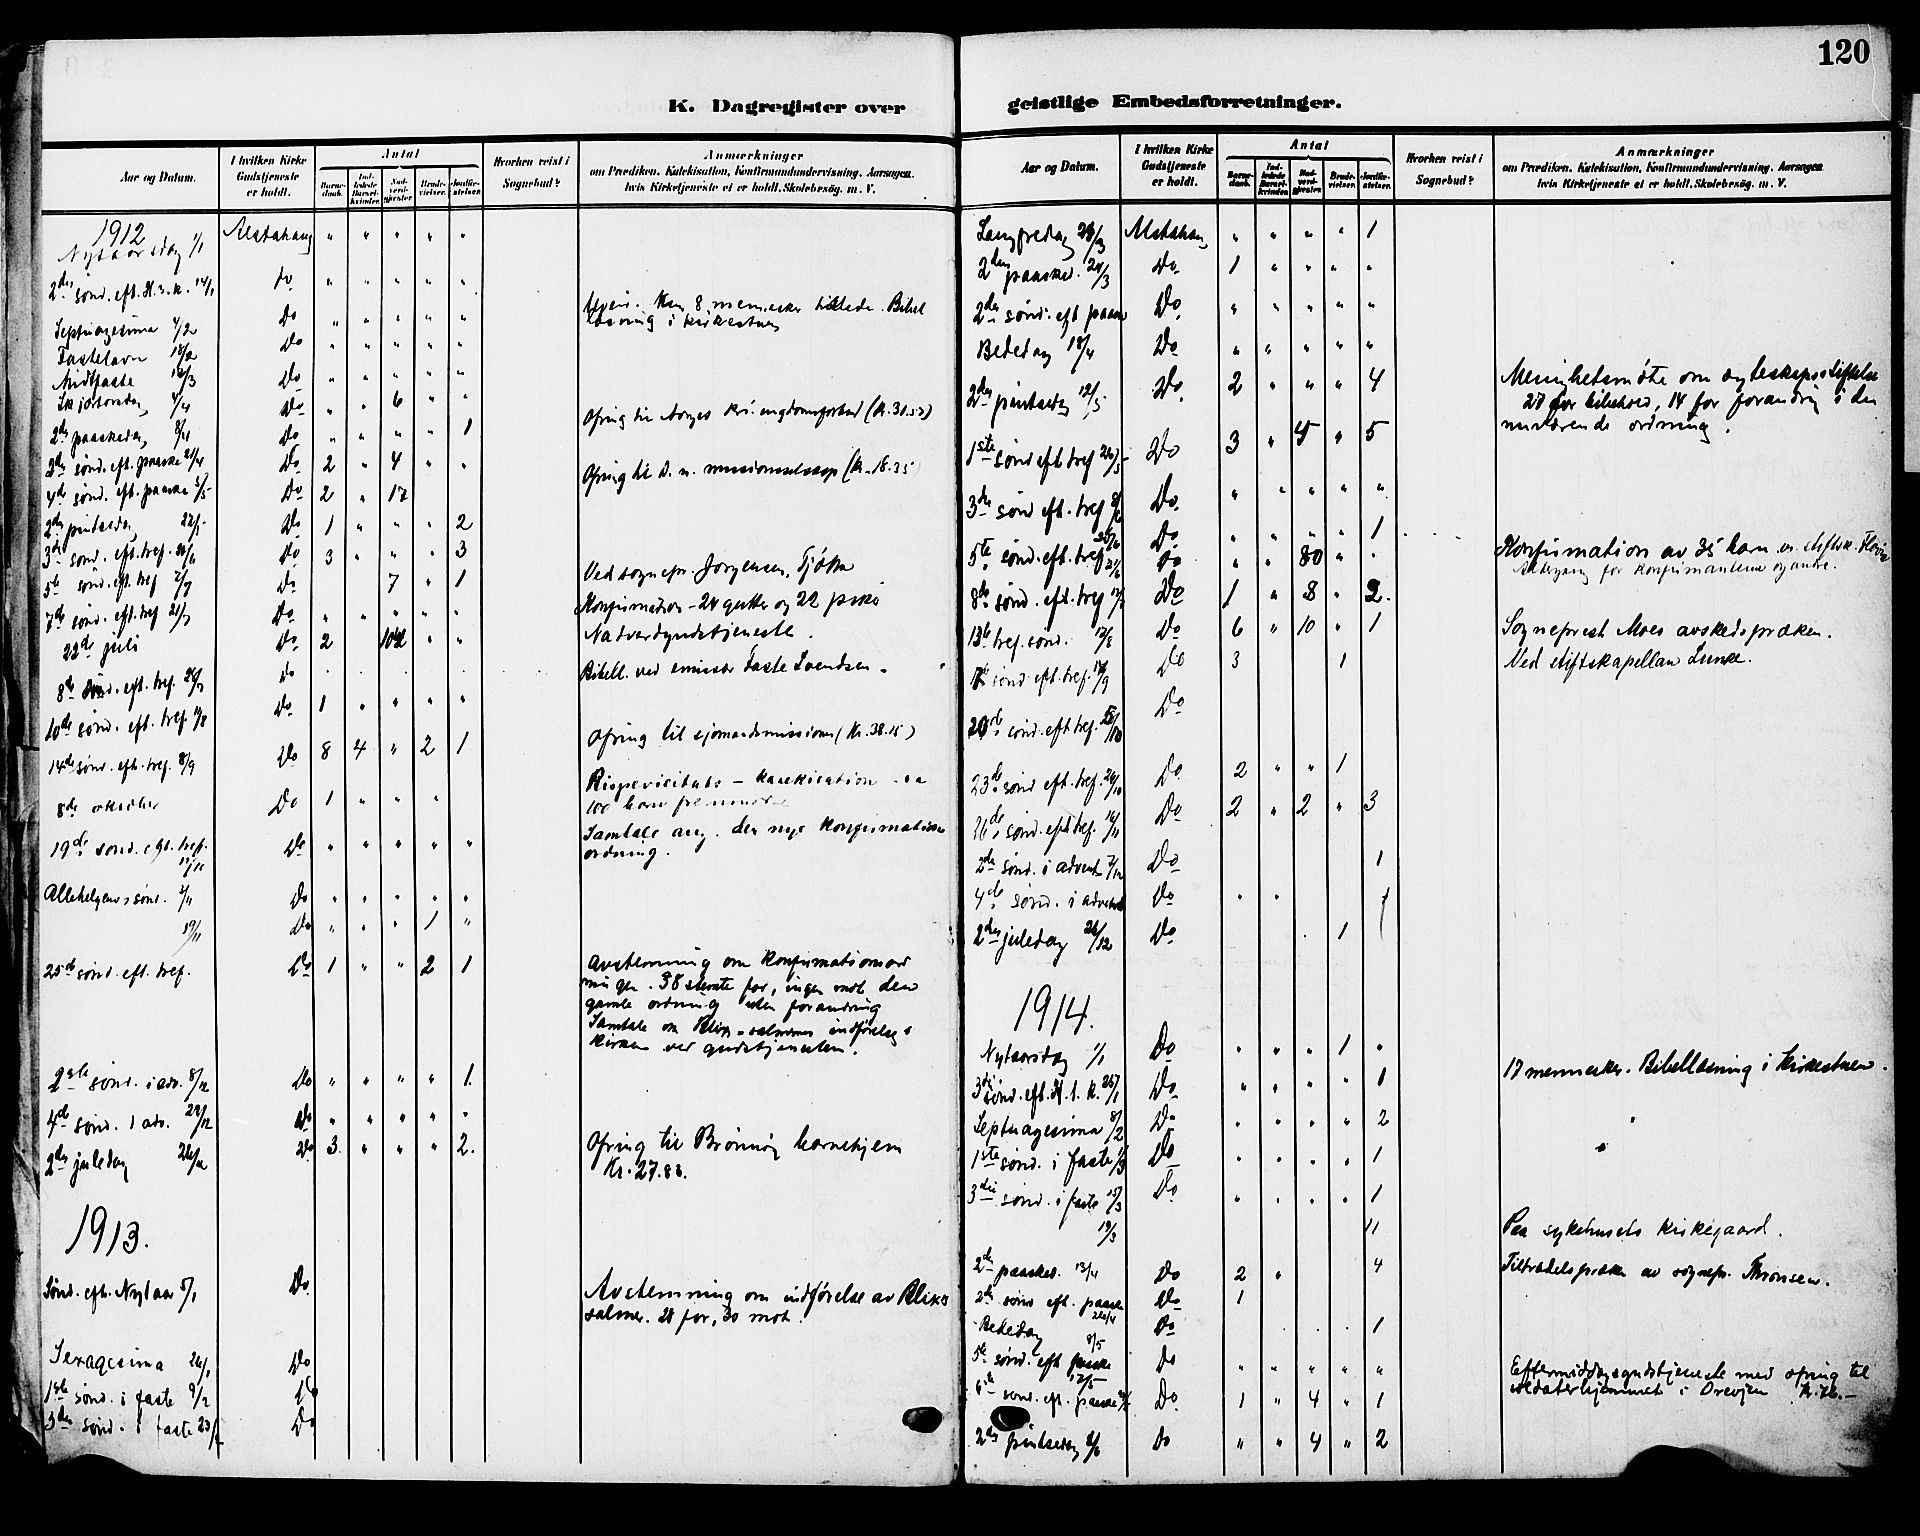 120
K. Dagregister over
geistlige Embedsforretninger.
Aar og Datum.
I hvilken Kirke Gudstjeneste er holdt.
Antal
Barne-daab.
Ind-ledede Barsel-kvinder.
Nad-verd-gjester.
Brude-vielser.
Jordfæ-stelser.
Hvorhen reist i Sognebud?
Anmærkninger
om Prædiken, Katekisation, Konfirmandundervisning, Aarsagen,
hvis Kirketjeneste ei er holdt, Skolebesög. m. V.
1912
Nyttaarsdag 1/1 Alstahaug " " " " "
2den sønd. eft. H. 3. K. 14/1 do " " " " "
Uveir. Kun 8 mennesker tilstede. Bibel
læsning i kirkestuen
Septuagesima 4/2 Do " " " " "
Fastelavn 18/2 Do " " " " "
Midtfaste Do " " " " "
Skjærtorsdag 4/4 Do " " 6 " "
Ofring til Norges kr. ungdomsforbud
2den paaskedag 8/4 Do " " " " 1
3die sønd. eft. paaske 21/4 Do 2 " 4
Ofring til d. n. missionsselskap (kr. 18.35)
4de sønd. eft. paaske 5/5 Do 2 " 17
2den pintsedag Do 1 " " " 2
3die sønd. eft. tref. Do 3 " " " 3
Ved sognepr. Jørgensen, Tjøtta
5te sønd. eft. tref 7/7 Do 7 " 1
Konfirmation - 24 gutter og 22 piker
7de sønd. eft. tref 21/7 Do " " " " "
Nadverdgudstjeneste.
22de juli Do 2 " 102 " "
Bibell. ved emissær Faste Svendsen.
8de sønd. eft. tref. do
10de sønd. eft. tref. Do 1 " " " "
Ofring til sjømandsmissionen (Kr. 38.15)
14de sønd. eft. tref. 8/9 Do 8 4 " 2 1
Bispevisitats - katekisation
100 barn fremmøtte
8de oktober Do 1 " " "
Samtale ang. den nye konfirmations
ordning.
19de sønd. eft. tref. Do " " " " "
Allehelgens sønd. 3/11 Do " " " " "
17/11 Do " " " 1 "
25de sønd. eft. tref. Do 1 " " 2 1
Avstemning om konfirmationsord
ningen. 38 stemte for, ingen mot den
gamle ordning uten forandring
Samtale om Blix-salmernes indførelse i
kirken ved gudstjenesten.
2den sønd. i adv. 8/12 Do " " " " 1
4de sønd. i adv. 22/12 Do " " " " "
2den juledag 26/12 Do 3 " " " 2
Ofring til Brønnøy barnehjem
Kr. 27.83.
1913.
Sønd. eft. Nytaar 5/1 Do
Avstemning om indførelse av Blix's
salmer. 28 for, 30 mot.
Sexagesima 26/1 Do
1ste sønd. i faste 9/2 Do
3die sønd. i faste 23/2 Do
Aar og Datum.
I hvilken Kirke Gudstjeneste er holdt.
Antal
Barne-daab.
Ind-ledede Barsel-kvinder.
Nad-verd-gjester.
Brude-vielser.
Jordfæ-stelser.
Hvorhen reist i Sognebud?
Anmærkninger
om Prædiken, Katekisation, Konfirmandundervisning, Aarsagen,
hvis Kirketjeneste ei er holdt, Skolebesög. m. V.
Langfredag Alstahaug " " " " 1
2den paasked. 24/3 Do 1 " " " "
2den sønd. eft paaske Do " " " "
Bededag 18/4 Do " " " " "
2den pintsedag 12/5 Do 2 " " " 4
Menighetsmøte om egteskapsstiftelse
27 for bibehold, 14 for forandring i den
nuværende ordning.
1ste sønd eft tref Do 3 " 45 " 5
3die sønd eft. tref 8/6 Do " " " " "
Do " " " " 1
5te sønd. eft. tref do " " 80 " "
Konfirmation av 35 barn
Altergang for konfirmanterne og andre.
8de sønd. eft. tref Do 1 " 8 " 2.
13de tref. sønd. 17/8 Do 6 " 10 " 1
Sogneprest Moes avskedspræken.
sønd. eft. tref. Do 3 1
Ved stiftskapellan Lunke.
20de sønd eft tref Do
23de sønd eft tref Do 2 " " 1
26de sønd. eft tref. 16/11 Do 2 " 2 " 3
2den sønd. i advent 7/12 Do 1
4de sønd. i advent Do " " 1
2den juledag 26/12 Do 1
1914.
Nytaarsdag 1/1 Do " " " 1 "
3die sønd. eft. H. t. K. 25/1 Do " " " " 1
17 mennesker. Bibellæsning i kirkestuen.
Septuagesima 8/2 Do " " " " 2
1ste sønd. i faste 1/3 Do " " " " 1
3die sønd. i faste 15/3 Do " " " " 1
19/3 11
Paa sykehusets kirkegaard.
2den paasked. 13/4 Do 2 " 4
Tiltrædelsespræken av sognepr. Thronsen.
2den sønd eft. paaske 26/4 Do 1
Bededag 8/5 Do 1
5te sønd. eft paaske 17/5 Do " " " " "
Eftermiddagsgudstjeneste med ofring til
soldaterhjemmet i Drevjen
6te sønd. eft. paaske Do 1 " 4 " 1
2den pintsedag 1/6 Do " " 4 " 2